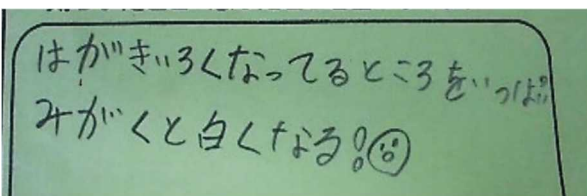 はがきいろくなってるところをいっぱい
みがくと白くなる!